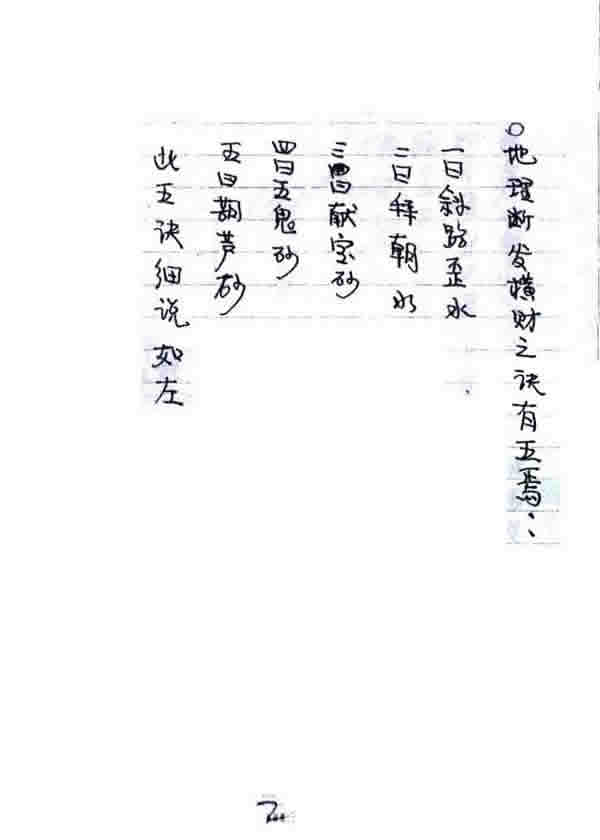 ○地理断发横财之诀有五焉：
一曰斜路歪水
二曰拜朝水
三曰献宝砂
四曰五鬼砂
五曰葫芦砂
此五诀细说如左
2